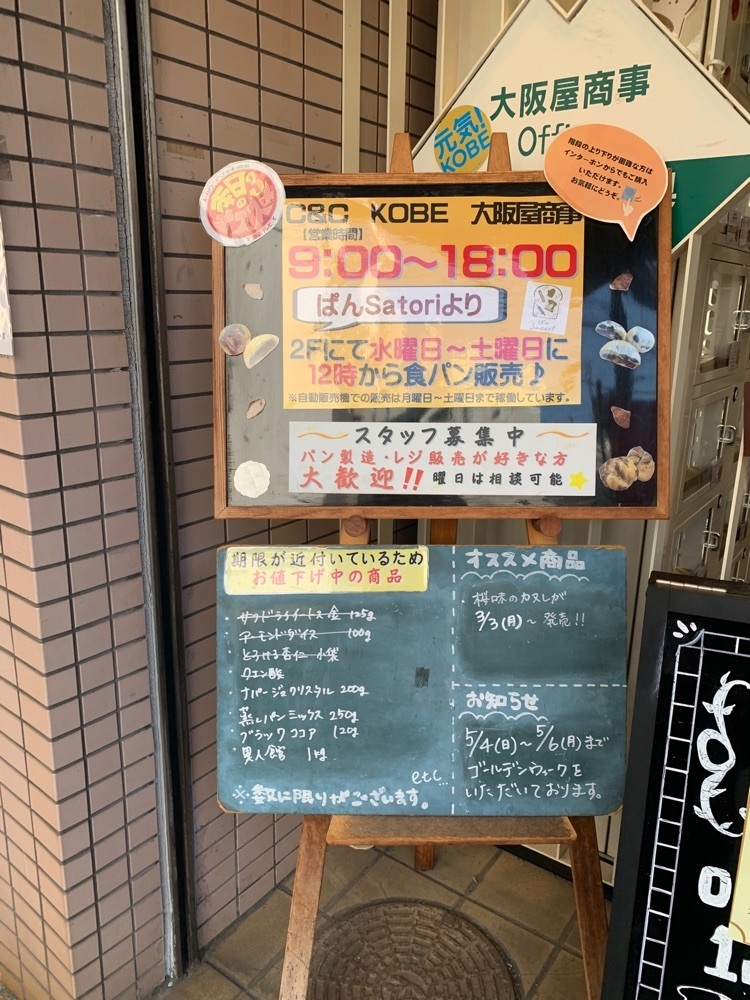 大阪屋商事
元気!
KOBE
階段の上り下りが困難な方は
インターホンからでもご購入
いただけます。
お気軽にどうぞ。
毎日の
C&C KOBE 大阪屋商事
【営業時間】
9:00～18:00
ぱんSatoriより
2Fにて水曜日～土曜日に
12時から食パン販売♪
※自動販売機での販売は月曜日～土曜日まで稼働しています。
スタッフ募集中
パン製造・レジ販売が好きな方
大歓迎!! 曜日は相談可能
期限が近付いているため
お値下げ中の商品
125g
・アーモンドダイス 100g
・とろける杏仁 小袋
クエン酸
・ナパージュクリスタル 200g
・蒸しパンミックス 250g
・ブラックココア 120g
・異人館 1kg
etc...
※数に限りがございます。
オススメ商品
3/3(月)～発売!!
お知らせ
5/4(日)～5/6(月)まで
ゴールデンウィークを
いただいております。